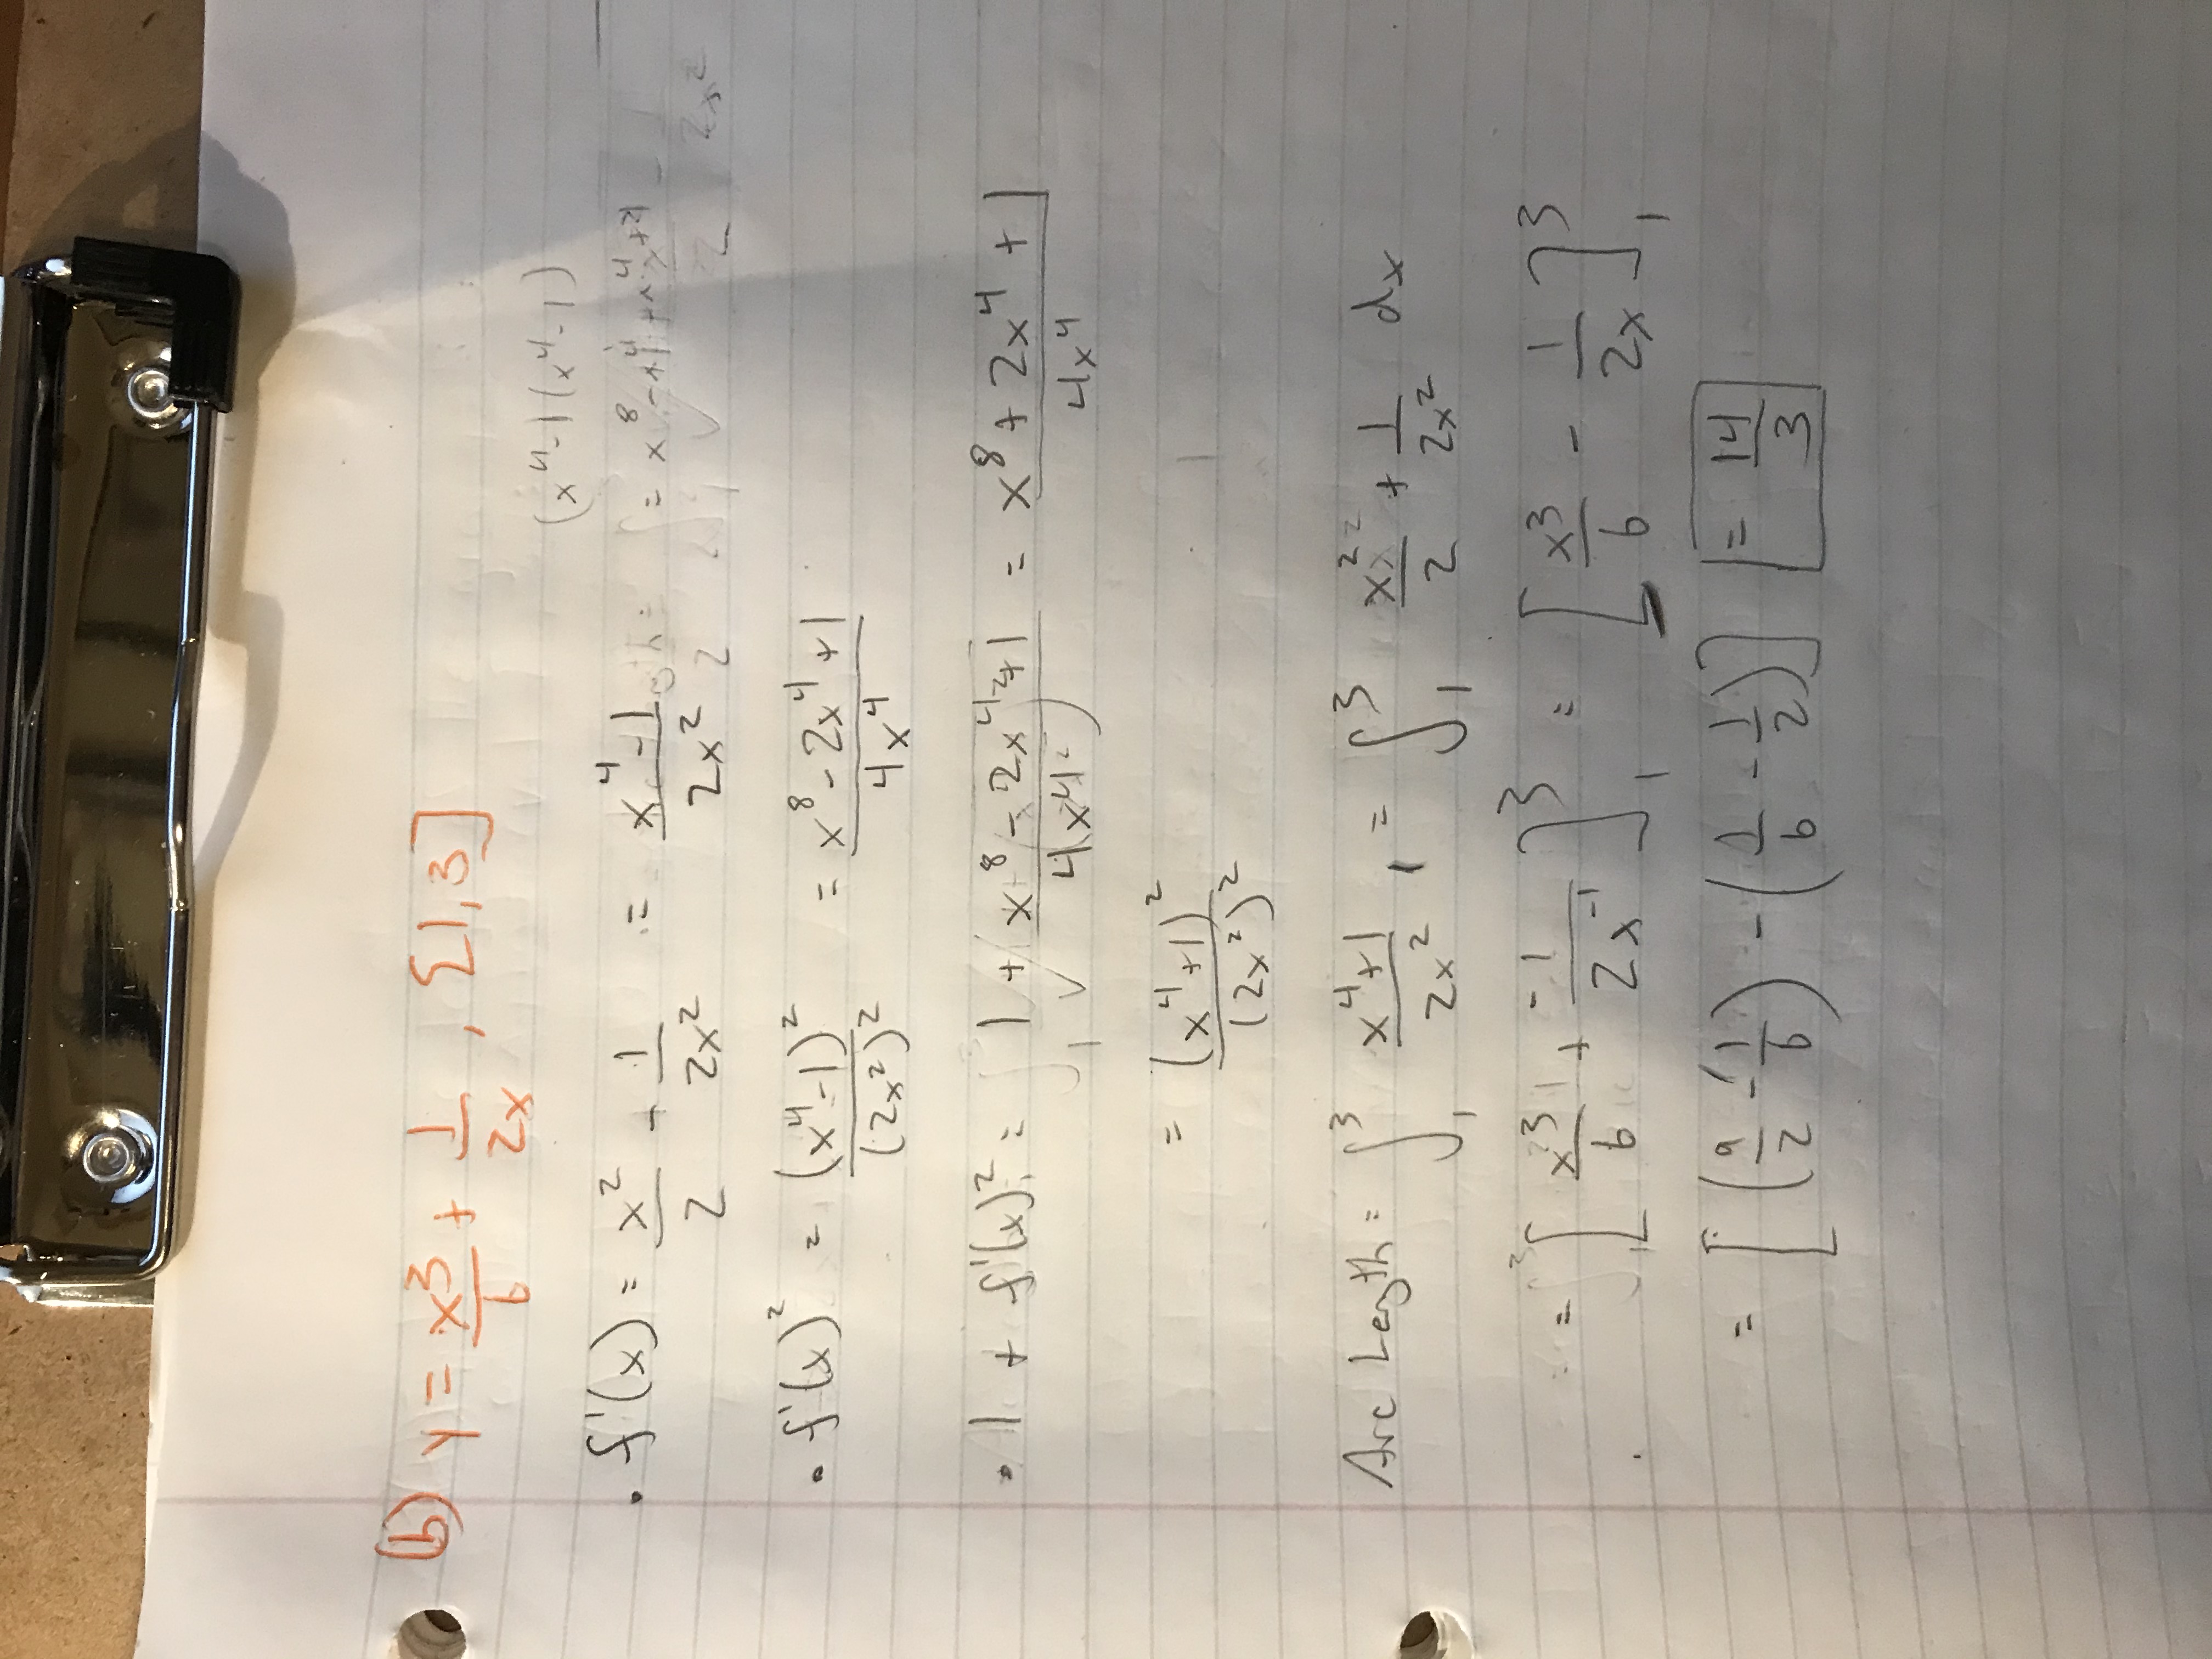 (b) y = x³/6 + 1/2x , [1,3]
(x⁴-1(x⁴-1)
• f'(x) = x²/2 - 1/2x² = x⁴-1/2x² = x⁸
• f'(x)² = (x⁴-1)²/(2x²)² = x⁸-2x⁴+1/4x⁴
• 1 + f'(x)² = 1 + x⁸-2x⁴+1/4x⁴ = x⁸+2x⁴+1/4x⁴
= (x⁴+1)²/(2x²)²
Arc Length = ∫₁³ x⁴+1/2x² , = ∫₁³ x²/2 + 1/2x² dx
= [x³/6 + -1/2x⁻¹]₁³ = [x³/6 - 1/2x]₁³
= [(9/2 - 1/6) - (1/6 - 1/2)] = 14/3